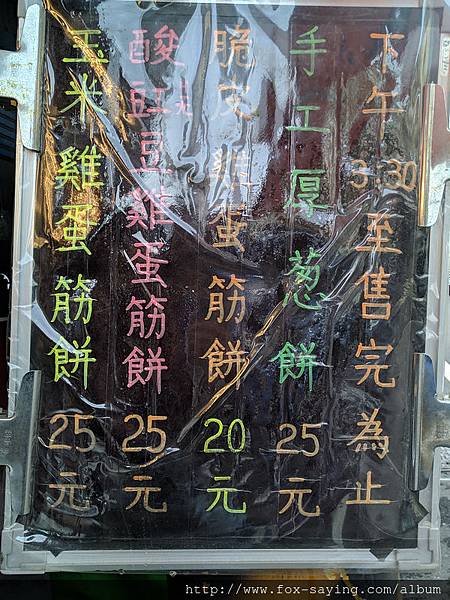 下午3:30至售完為止
手工厚葱餅 25元
脆皮雞蛋筋餅 20元
酸豇豆雞蛋筋餅 25元
玉米雞蛋筋餅 25元
http://www.fox-saying.com/album